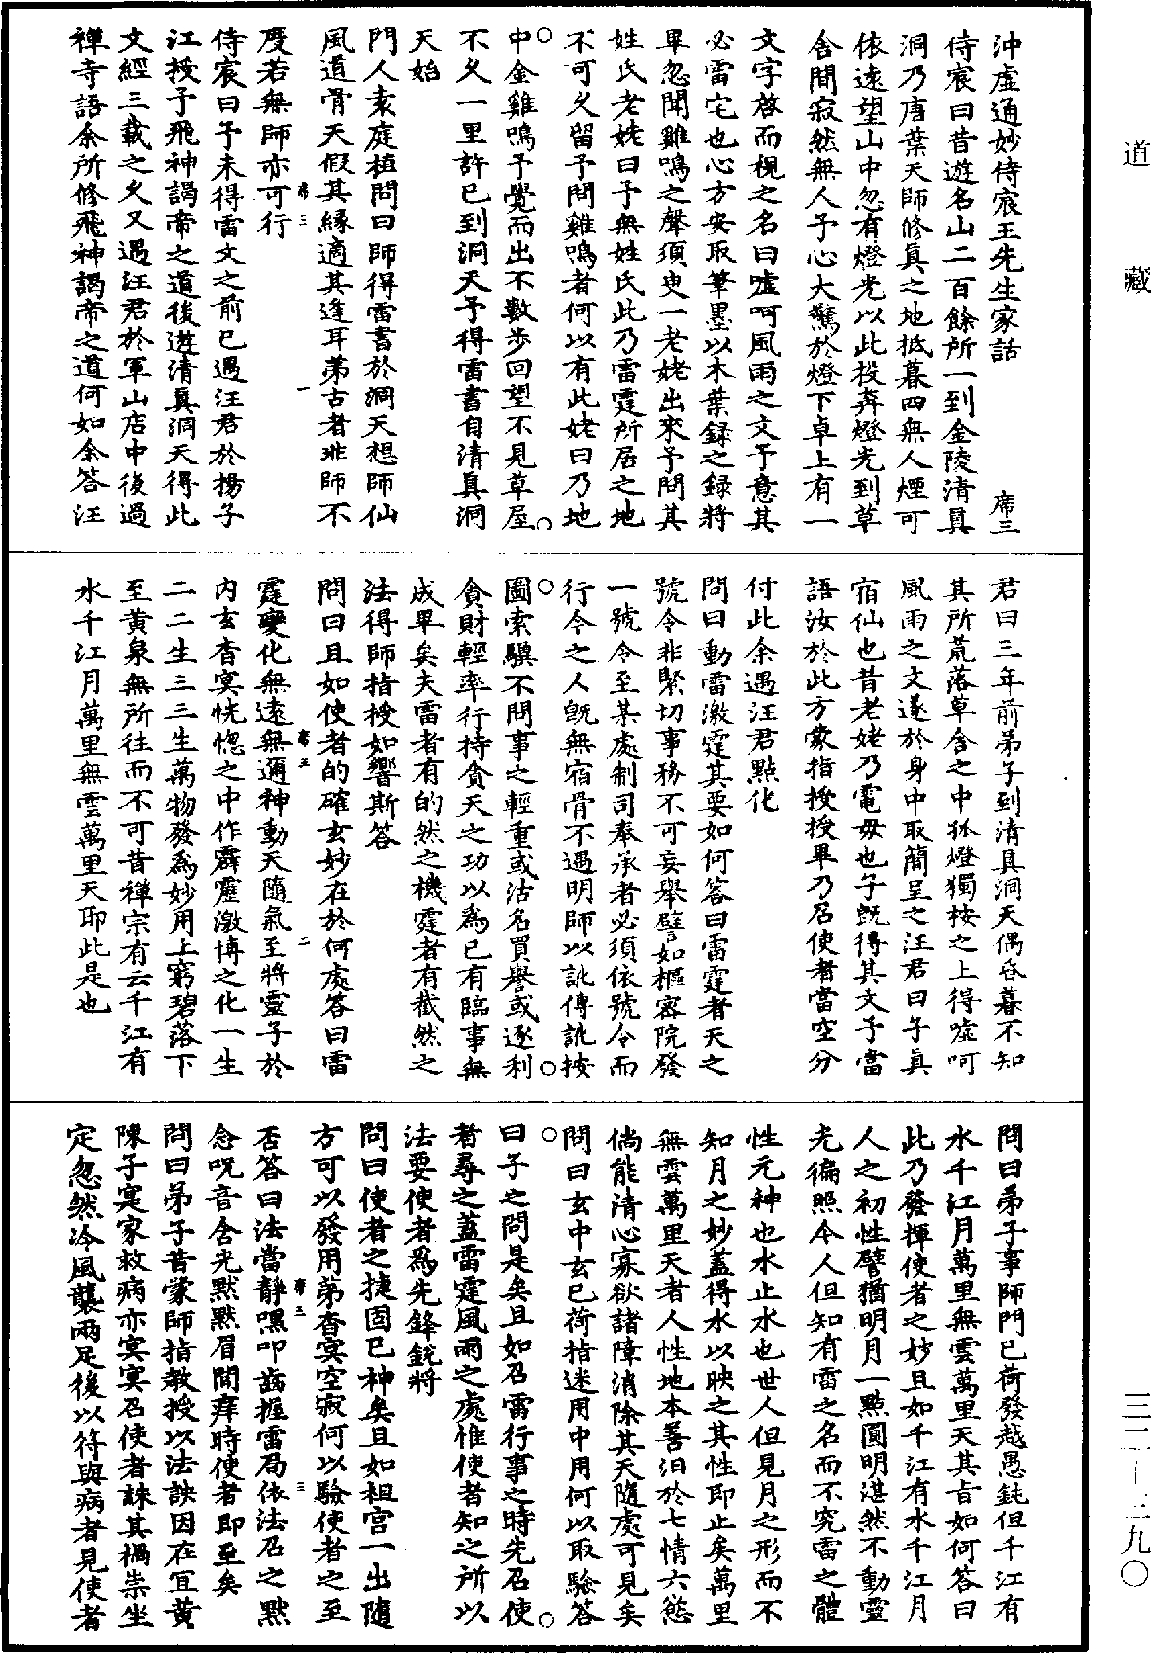 道藏
沖虛通妙侍宸王先生家話 席三
侍宸曰昔遊名山二百餘所一到金陵清真
洞乃唐葉天師修真之地抵暮四無人煙可
依遠望山中忽有燈光以此投奔燈光到草
舍間寂然無人予心大驚於燈下卓上有一
文字啓而視之名曰噓呵風雨之文予意其
必雷宅也心方安取筆墨以木葉録之録將
畢忽聞雞鳴之聲須臾一老姥出來予問其
姓氏老姥曰予無姓氏此乃雷霆所居之地
不可久留予問雞鳴者何以有此姥曰乃地
中金雞鳴予覺而出不數步回望不見草屋
不久一里許已到洞天予得雷書自清真洞
天始
門人袁庭植問曰師得雷書於洞天想師仙
風道骨天假其緣適其逢耳弟古者非師不
度若無師亦可行
侍宸曰予未得雷文之前已遇汪君於揚子
江授予飛神謁帝之道後遊清真洞天得此
文經三載之久又遇汪君於軍山店中後過
禪寺語余所修飛神謁帝之道何如余答汪
君曰三年前弟子到清真洞天偶昏暮不知
其所荒落草舍之中孤燈獨桉之上得噓呵
風雨之文遂於身中取簡呈之汪君曰子真
宿仙也昔老姥乃電母也子既得其文予當
語汝於此方蒙指授授畢乃召使者當空分
付此余遇汪君點化
問曰動雷激霆其要如何答曰雷霆者天之
號令非緊切事務不可妄舉譬如樞密院發
一號令至某處制司奉承者必須依號令而
行今之人既無宿骨不遇明師以訛傳訛按
圖索驥不問事之輕重或沽名買譽或逐利
貪財輕率行持貪天之功以為已有臨事無
成單矣夫雷者有的然之機霆者有截然之
法得師指授如響斯答
問曰且如使者的確玄妙在於何處答曰雷
霆變化無遠無邇神動天隨氣至將靈子於
內玄杳冥恍惚之中作霹靂激博之化一生
二二生三三生萬物發為妙用上窮碧落下
至黃泉無所往而不可昔禪宗有云千江有
水千江月萬里無雲萬里天耶此是也
問曰弟子事師門已荷發越愚鈍但千江有
水千江月萬里無雲萬里天其旨如何答曰
此乃發揮使者之妙且如千江有水千江月
人之初性譬猶明月一點圓明湛然不動靈
光徧照今人但知有雷之名而不究雷之體
性元神也水止水也世人但見月之形而不
知月之妙蓋得水以映之其性即止矣萬里
無雲萬里天者人性地本善汨於七情六慾
倘能清心寡欲諸障消除其天隨處可見矣
問曰玄中玄已荷指迷用中用何以取驗答
曰子之問是矣且如召雷行事之時先召使
者尋之蓋雷霆風雨之處惟使者知之所以
法要使者為先鋒銳將
問曰使者之捷固已神矣且如祖宮一出隨
方可以發用弟杳冥空寂何以驗使者之至
否答曰法當靜嘿叩齒握雷局依法召之黙
念呪音含光黙黙眉間痒時使者即至矣
問曰弟子昔蒙師指教授以法訣因在宜黃
陳子寔家救病亦冥冥召使者誅其禍祟坐
定忽然冷風襲兩足後以符與病者見使者
席三 一
席三 二
席三 三
三二—三九〇